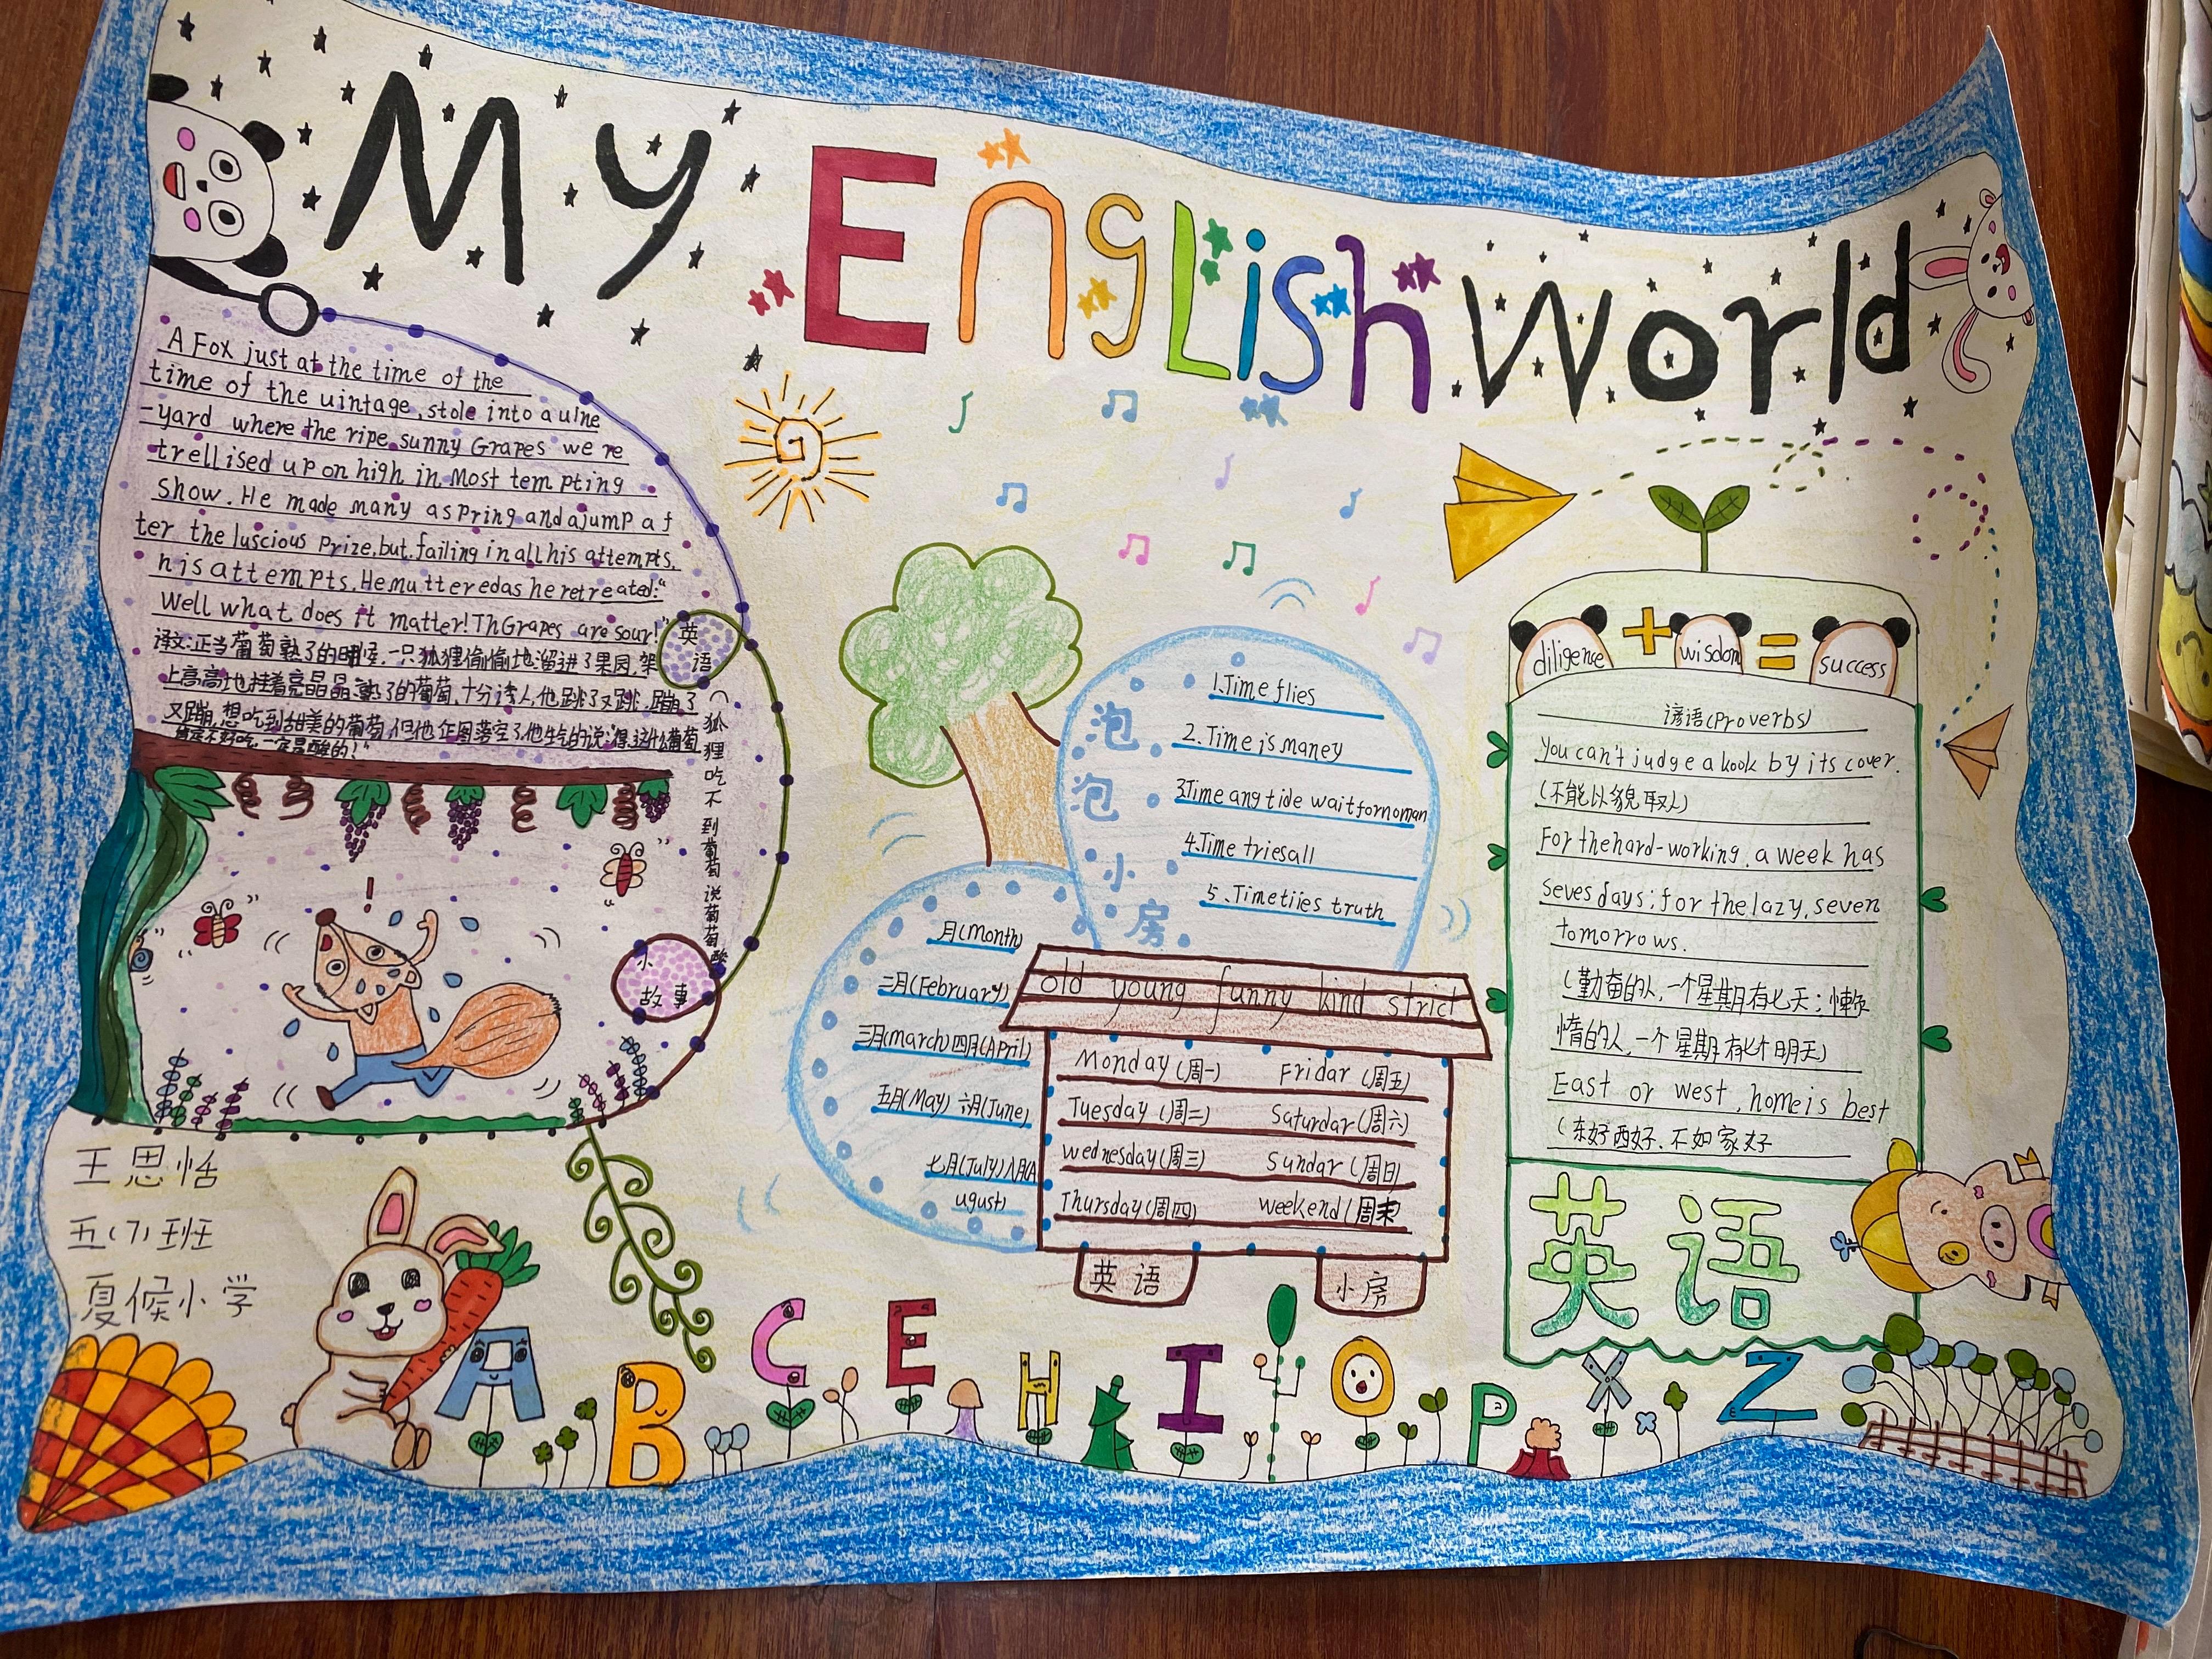 My English World
A Fox just at the time of the
time of the uintage, stole into a uine
-yard where the ripe sunny Grapes were
trellised up on high in Most tempting
show. He made many aspring and ajump af
ter the luscious Prize, but. failing in all his attempts,
his attempts. He muttered as he retreated:"
Well what does it matter! Th Grapes are sour!"
译文:正当葡萄熟了的时候,一只狐狸偷偷地溜进了果园,架
上高高地挂着亮晶晶、熟了的葡萄,十分诱人,他跳了又跳,蹦了
又蹦,想吃到甜美的葡萄,但他企图落空了,他生气的说:"得,这什么葡萄
肯定不好吃,一定是酸的!"
英语
︵狐狸吃不到葡萄说葡萄酸
小故事
王思恬
五(7)班
夏候小学
泡泡小房
1.Time flies
2.Time is maney
3.Time ang tide wait for no man
4.Time tries all
5.Time tiies truth
月(Month)
二月(February)
三月(march)四月(April)
五月(May) 六月(June)
七月(July)八月(A
ugust)
old young funny kind strict
Monday(周一) Fridar(周五)
Tuesday(周二) Saturdar(周六)
wednesday(周三) Sundar(周日)
Thursday(周四) weekend(周末
英语 小房
diligence + wisdom = success
谚语(Proverbs)
You can't judge a kook by its cover.
(不能以貌取人)
For the hard-working, a week has
seves days; for the lazy, seven
tomorrows.
(勤奋的人,一个星期有七天;懒
惰的人,一个星期有七个明天)
East or west, home is best
(东好西好,不如家好
英语
A B C E H I O P X Z